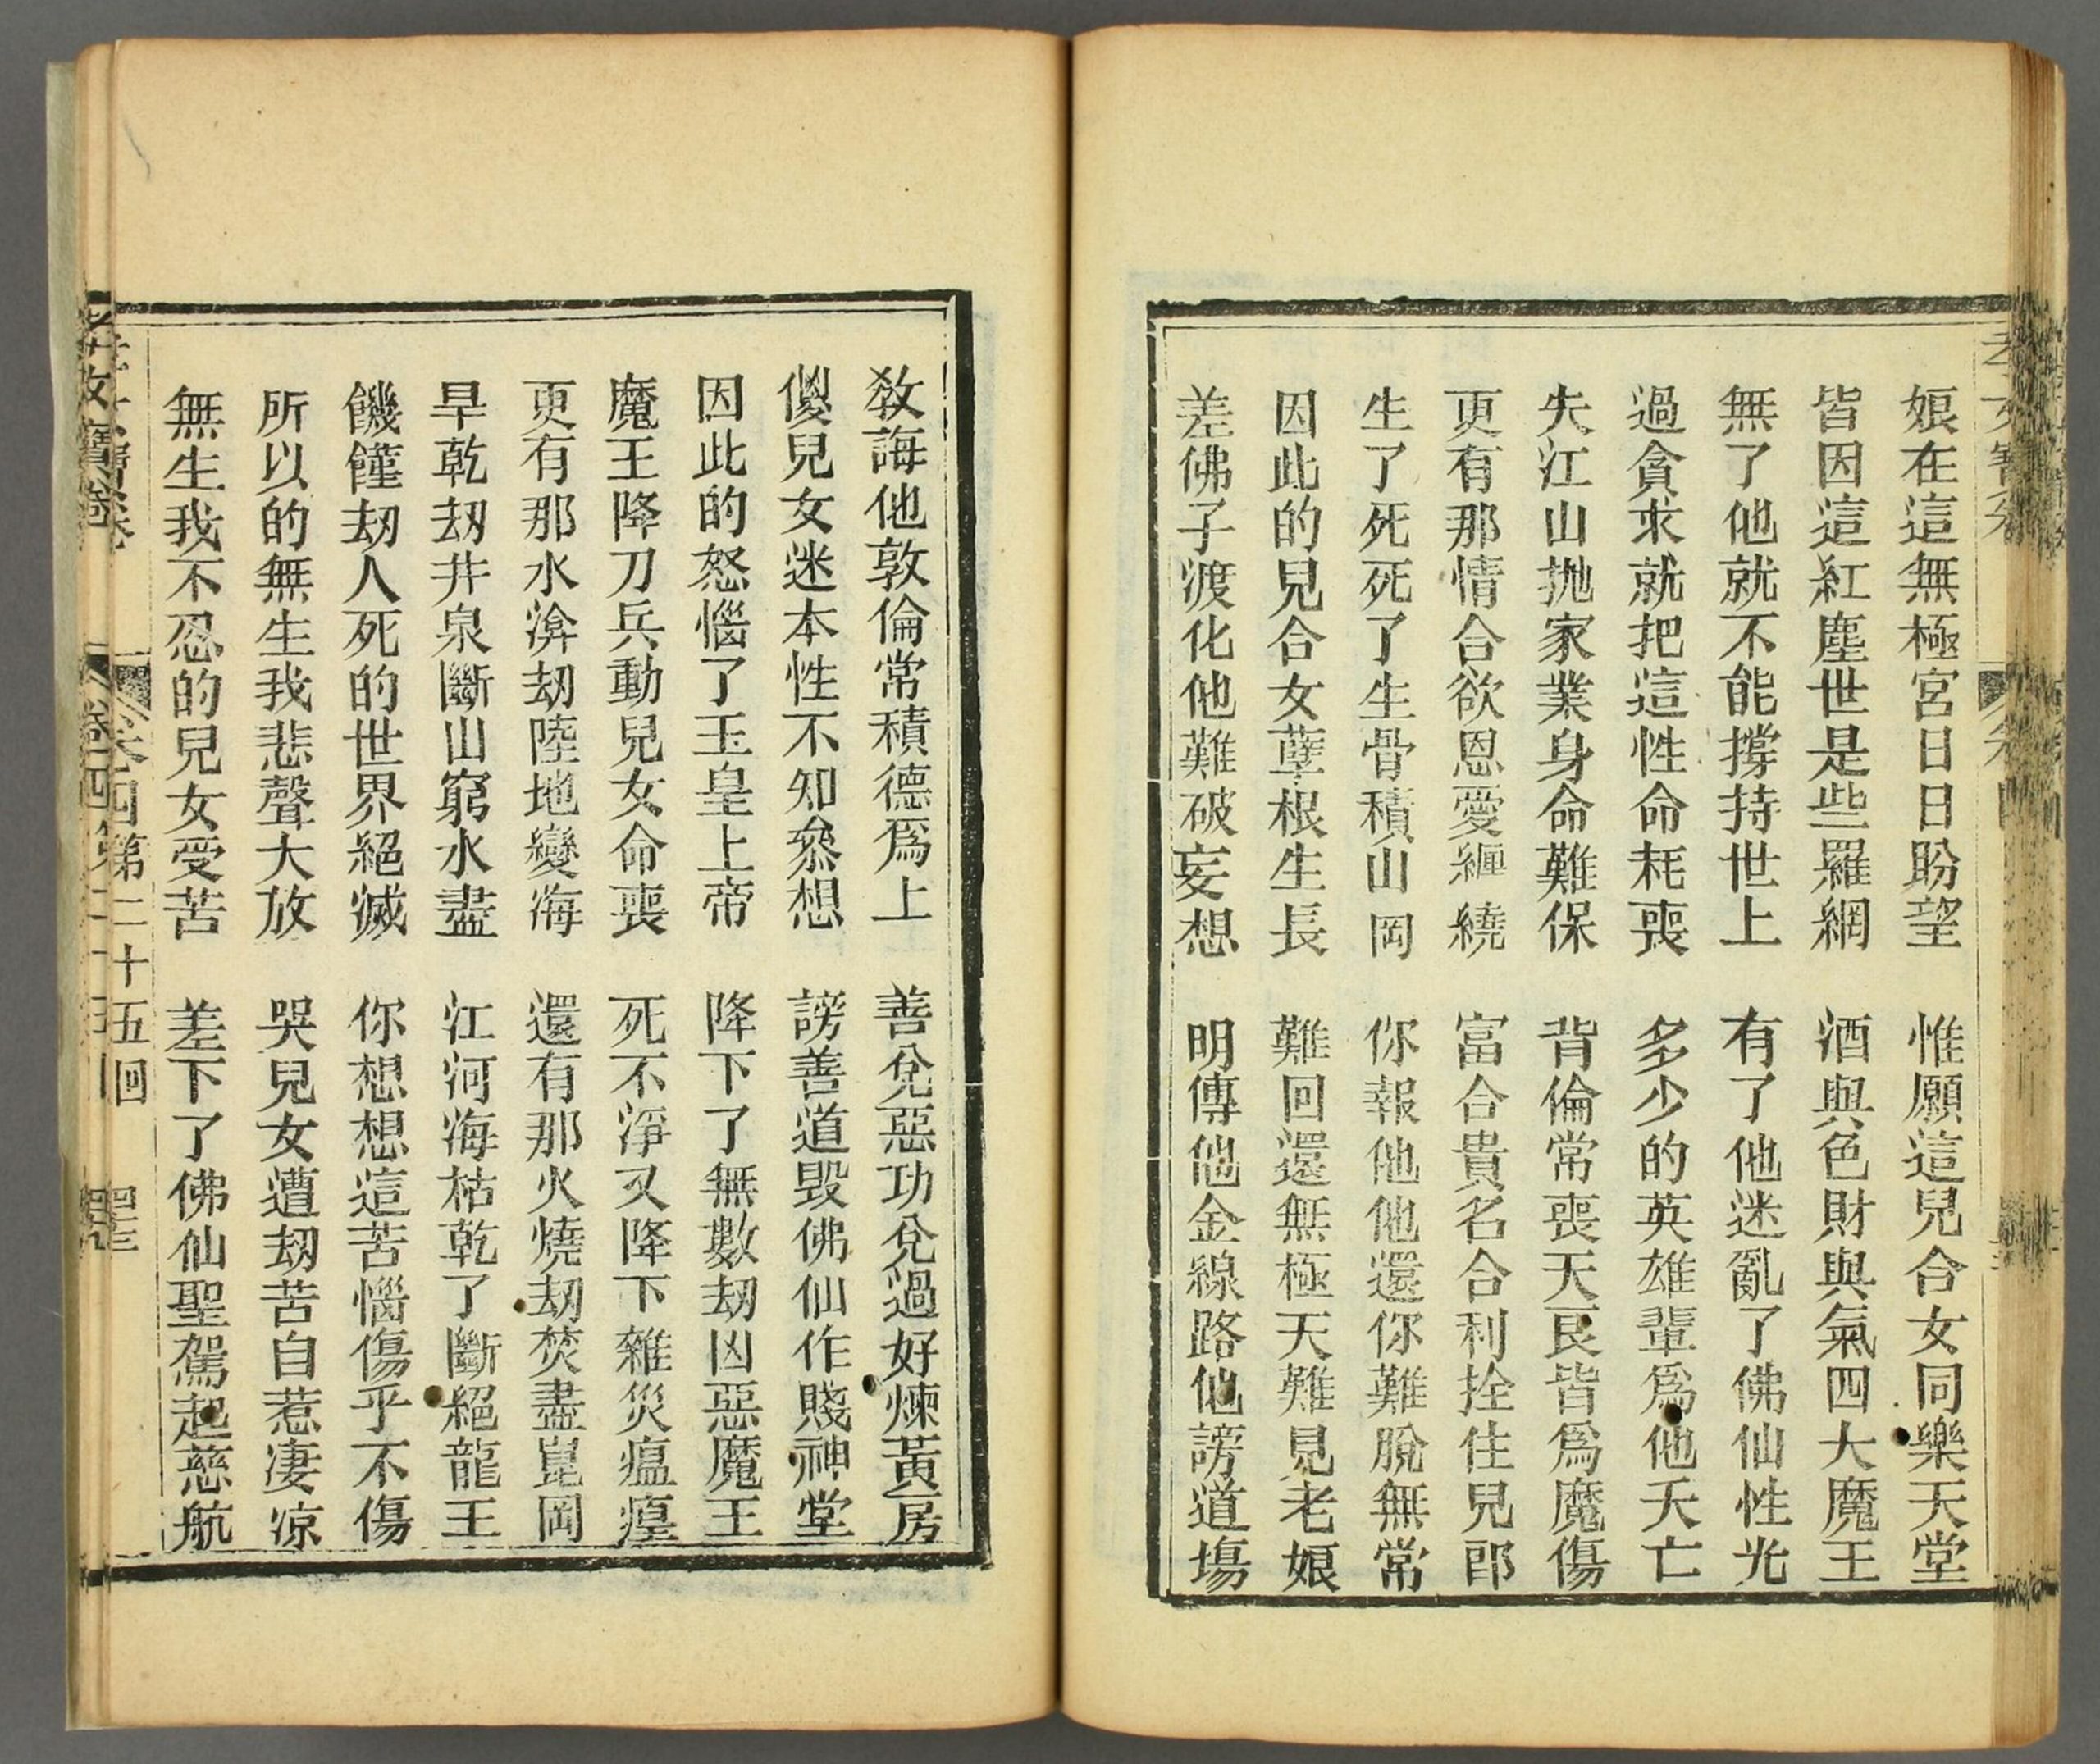 娘在這無極宮日日盼望　惟願這兒合女同樂天堂
皆因這紅塵世是些羅網　酒與色財與氣四大魔王
無了他就不能撐持世上　有了他迷亂了佛仙性光
過貪求就把這性命耗喪　多少的英雄輩爲他夭亡
失江山拋家業身命難保　背倫常喪天良皆爲魔傷
更有那情合欲恩愛纏繞　富合貴名合利拴住兒郎
生了死死了生骨積山岡　你報他他還你難脫無常
因此的兒合女孽根生長　難回還無極天難見老娘
差佛子渡化他難破妄想　明傳他金線路他謗道場
教誨他敦倫常積德爲上　善兌惡功兌過好煉黃房
儍兒女迷本性不知叅想　謗善道毀佛仙作賤神堂
因此的怒惱了玉皇上帝　降下了無數刼凶惡魔王
魔王降刀兵動兒女命喪　死不淨又降下雜災瘟㾮
更有那水渰刼陸地變海　還有那火燒刼焚盡崑岡
旱乾刼井泉斷山窮水盡　江河海枯乾了斷絕龍王
饑饉刼人死的世界絕滅　你想想這苦惱傷乎不傷
所以的無生我悲聲大放　哭兒女遭刼苦自惹凄凉
無生我不忍的兒女受苦　差下了佛仙聖駕起慈航
卷四第二十五回